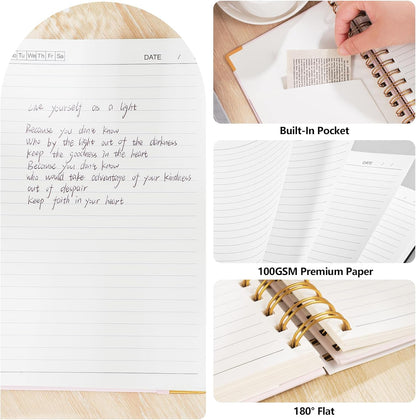 Mo Tu We Th Fr Sa
DATE /
Use yourself as a light
Because you don't know
Who by the light out of the darkness
keep the goodness in the heart
Because you don't know
who would take advantage of your kindness
out of despair
keep faith in your heart
Built-In Pocket
DATE / /
100GSM Premium Paper
180° Flat